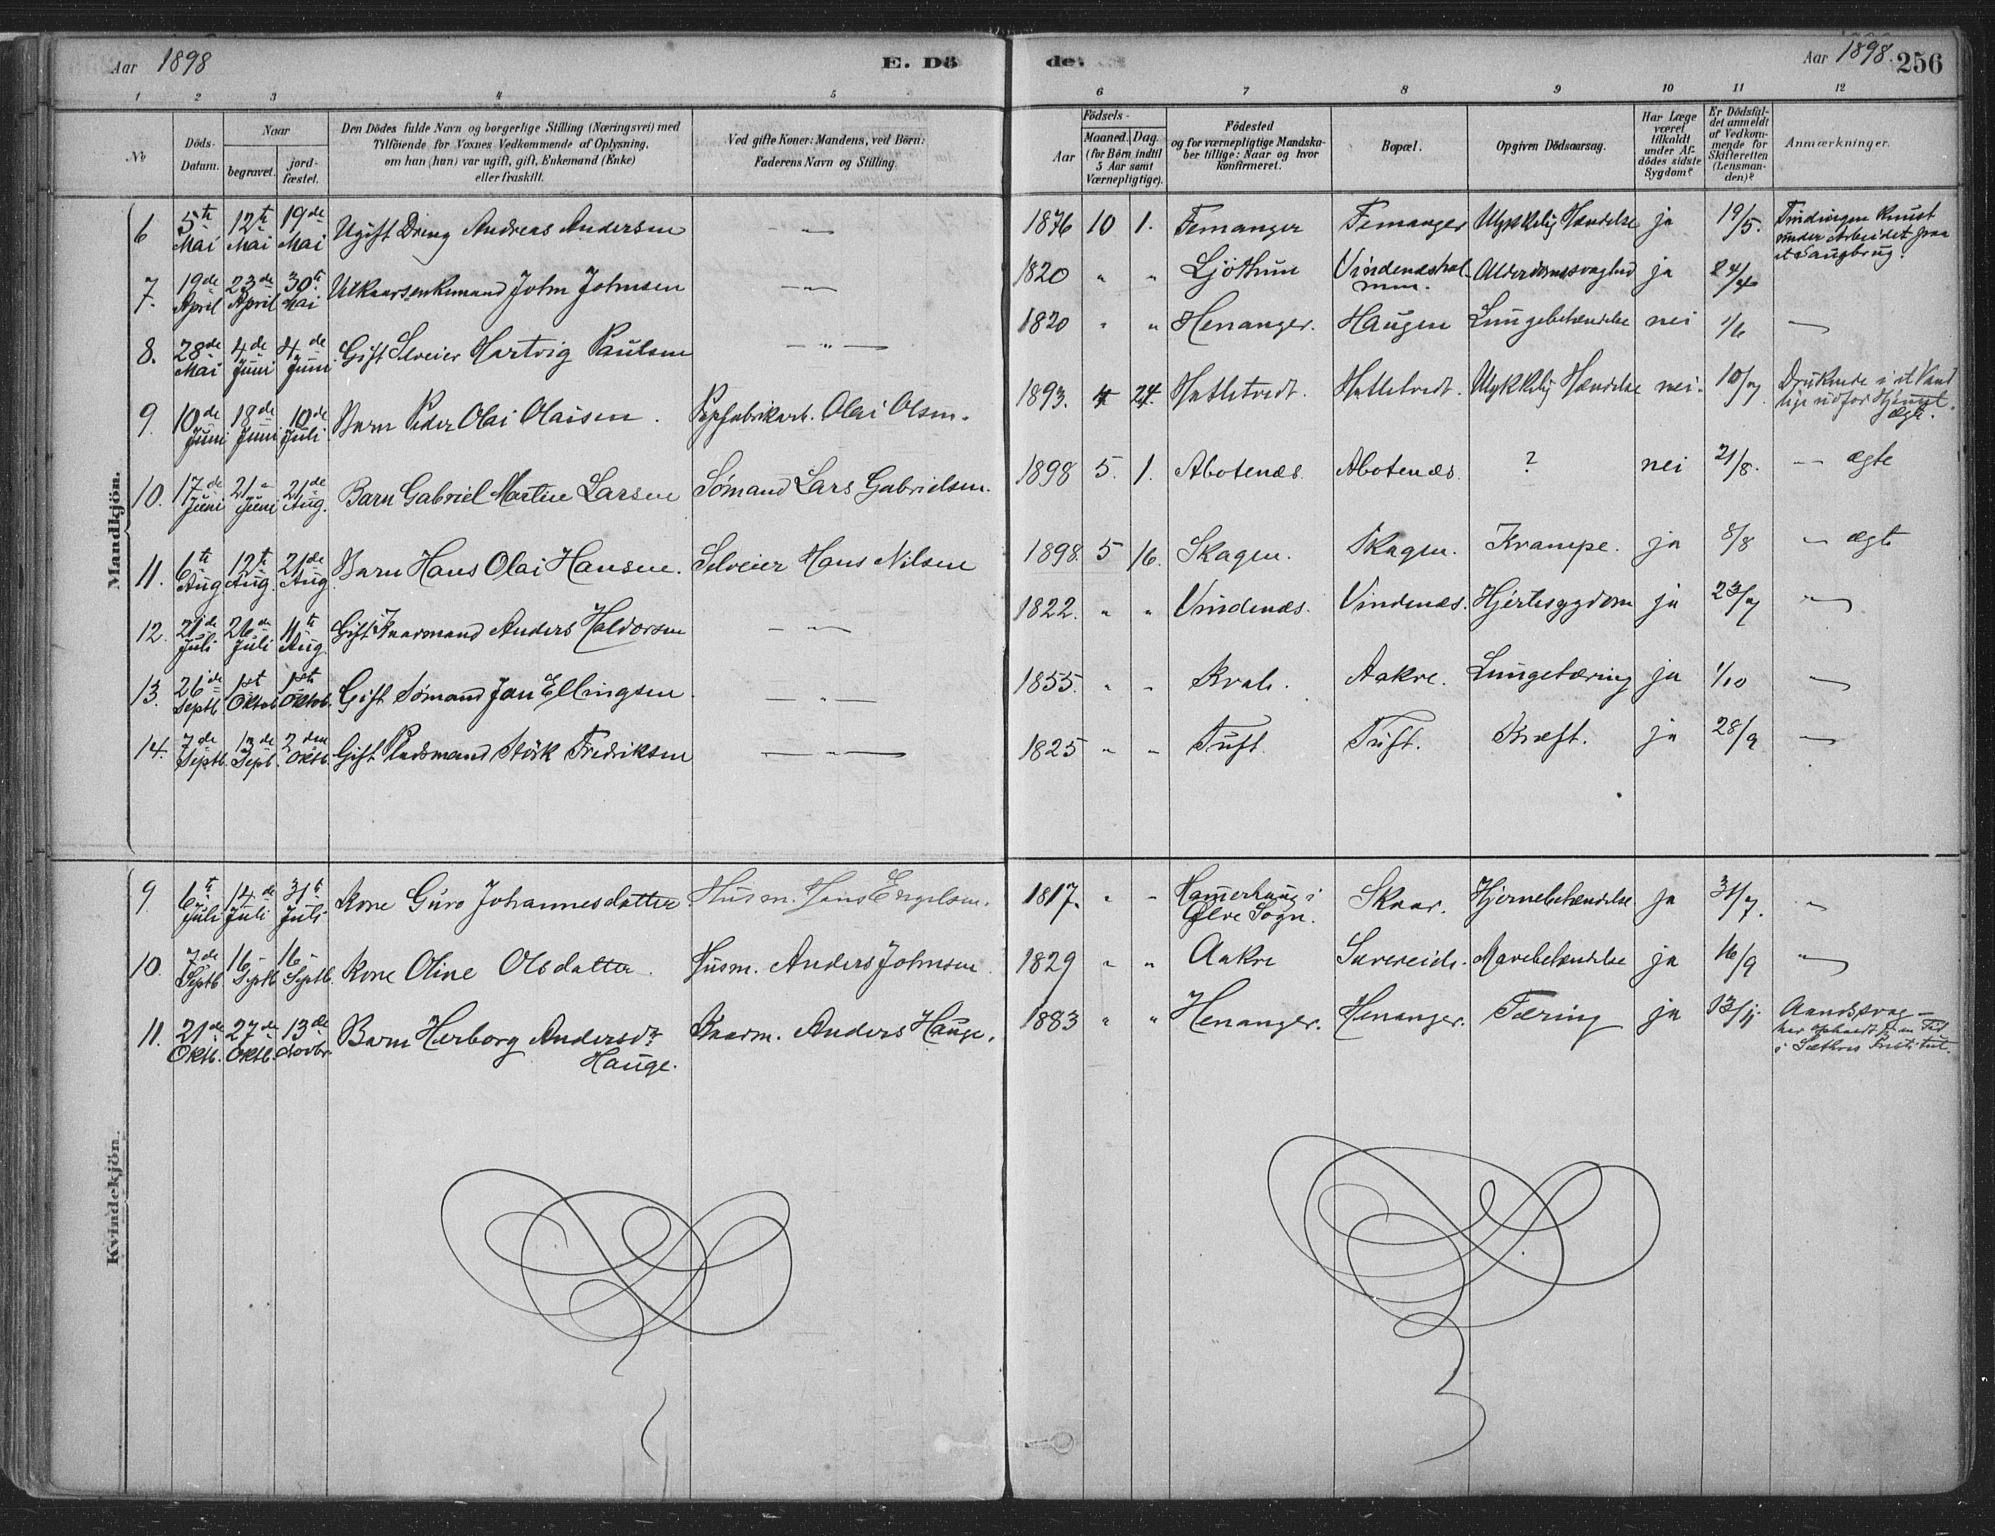 Aar 1898 E. Dö de. Aar 1898. 256
1 2 3 4 5 6 7 8 9 10 11 12
No
Döds-Datum.
Naar
begravet.
jord-fæstet.
Den Dödes fulde Navn og borgerlige Stilling (Næringsvei) med
Tilföiende for Voxnes Vedkommende af Oplysning,
om han (hun) var ugift, gift, Enkemand (Enke)
eller fraskilt.
Ved gifte Koner: Mandens, ved Börn:
Faderens Navn og Stilling.
Födsels-
Aar
Maaned. Dag.
(for Börn indtil
5 Aar samt
Værnepligtige).
Födested
og for værnepligtige Mandska-
ber tillige: Naar og hvor
konfirmeret.
Bopæl.
Opgiven Dödsaarsag.
Har Læge
været
tilkaldt
under Af-
dödes sidste
Sygdom?
Er Dödsfal-
det anmeldt
af Vedkom-
mende for
Skifteretten
(Lensman-
den)?
Anmærkninger.
Mandkjön.
6 5te Mai 12te Mai 19de Mai Ugift Dreng Andreas Andersen — " — 1876 10 1. Femanger Femanger Ulykkelig Hændelse ja 19/5. Tindingen knust
under Arbeidet paa
et Saugbrug.
7. 19de April 23de April 30te Mai Enkemand John Johnsen — " — 1820 " " Ljöthun Alderdomssvaghed ja 24/4
8. 28de Mai 4de Juni 4de Juni Gift Selveier Hartvig Paulsen — " — 1820 " " Henanger. Haugen Lungebetændelse nei 1/6 —
9. 10de Juni 18de Juni 10de Juli Barn Peder Olai Olaisen. Olai Olsen. 1893. 4 24. Hatletvedt. Hatletvedt. Ulykkelig Hændelse nei. 10/7 i et Vand
Ægte.
10. 17de Juni 21 Juni 21de Aug. Barn Gabriel Martin Larsen Sömand Lars Gabrielsen. 1898 5. 1. Abotenæs. Abotenæs. ? nei 21/8. — ægte
11. 6te Aug 12te Aug. 21de Aug Barn Hans Olai Hansen. Selveier Hans Nilsen 1898. 5 16. Skagen. Skagen. Krampe. ja 8/8 — ægte
12. 21de Juli 26de Juli 11te Aug. Gift Kaarmand Anders Haldorsen — " — 1822. " " Vindenæs. Vindenæs. Hjertesygdom ja 23/7 "
13. 26de Septb 1st Oktob 1ste Oktob. Gift Sömand Jan Ellingsen — " — 1855. " " Aakre. Lungetæring ja 1/10 "
14. 7de Septb. Sepb. 2den Oktb. Gift Pladsmand Störk Fredriksen — " — 1825 " " Tuft. Tuft. Kræft. ja 28/9 —
Kvindekjön.
9 6te Juli 14de Juli 31te Juli Kone Guro Johannesdatter Husm. Hans Engelsen. 1817. " " Hamerhaug i
Ølve Sogn. Skaar. Hjernebetændelse ja 31/7. "
10. 7de Septb 16 Septb 16 Septb. Kone Oline Olsdatter. Husm. Anders Johnsen 1829 " " Aakre Sævereide. Mavebetændelse ja 16/9 "
11. 21de Oktb. 27de Oktb. 13de Novbr. Barn Herborg Andersdr.
Hauge. Kaarm. Anders Hauge. 1883 " " Henanger. Henanger. Tæring ja 13/11 Aandssvag —
har opholdt en Tid
i Sæthres Institut.